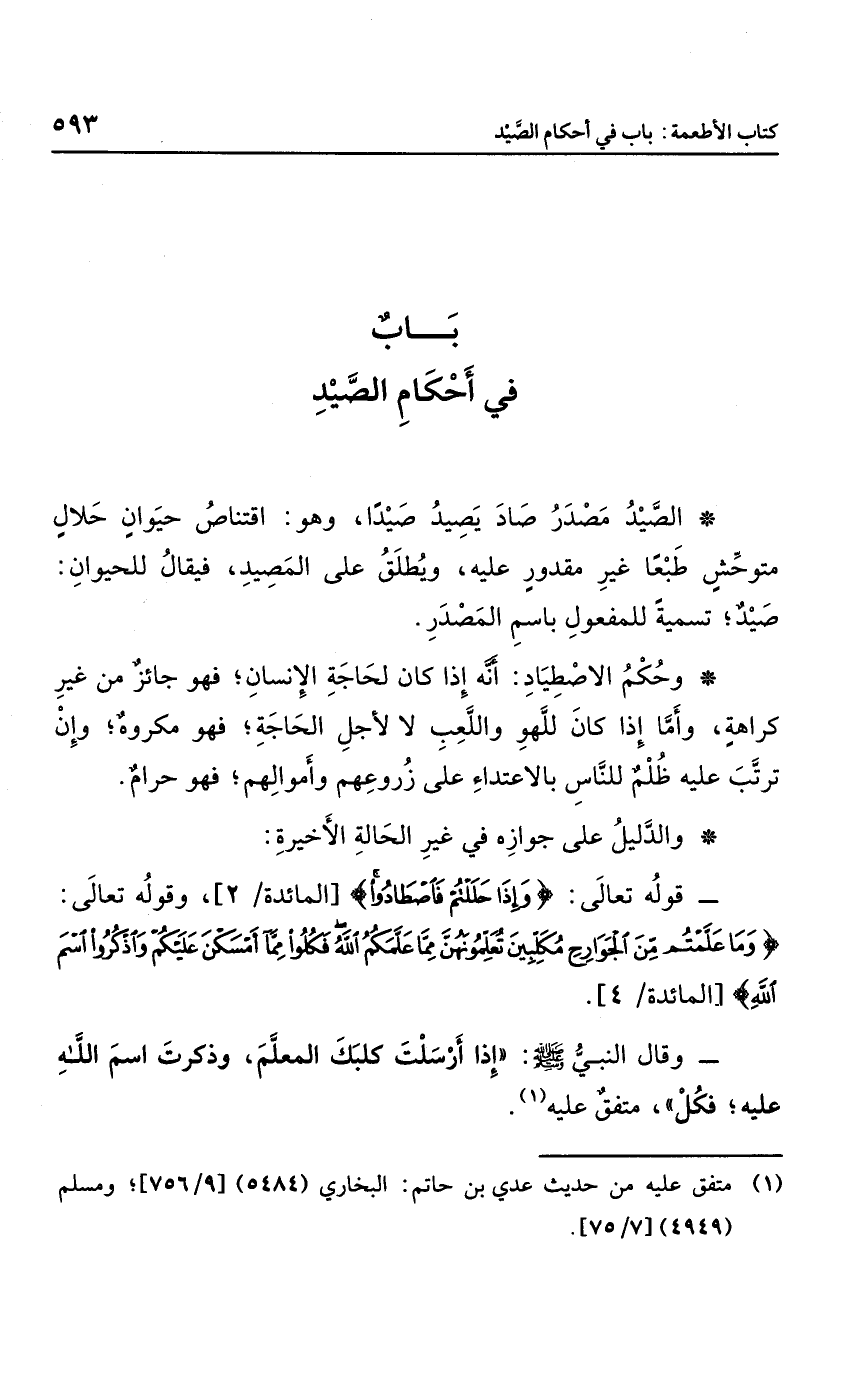 كتاب الأطعمة: باب في أحكام الصَّيْد ٥٩٣
بَـــابٌ
في أَحْكَامِ الصَّيْدِ
* الصَّيْدُ مَصْدَرُ صَادَ يَصِيدُ صَيْدًا، وهو: اقتناصُ حيَوانٍ حَلالٍ
متوحِّشٍ طَبْعًا غيرِ مقدورٍ عليه، ويُطلَقُ على المَصِيدِ، فيقالُ للحيوانِ:
صَيْدٌ؛ تسميةً للمفعولِ باسمِ المَصْدَرِ.
* وحُكْمُ الاصْطِيَادِ: أنَّه إذا كان لحَاجَةِ الإنسانِ؛ فهو جائزٌ من غيرِ
كراهةٍ، وأمَّا إذا كانَ للَّهوِ واللَّعِبِ لا لأجلِ الحَاجَةِ؛ فهو مكروهٌ؛ وإنْ
ترتَّبَ عليه ظُلْمٌ للنَّاسِ بالاعتداءِ على زُروعِهم وأموالِهم؛ فهو حرامٌ.
* والدَّليلُ على جوازِه في غيرِ الحَالةِ الأخيرةِ:
ـ قولُه تعالَى: ﴿وَإِذَا حَلَلْتُمْ فَاصْطَادُواْ﴾ [المائدة/ ٢]، وقولُه تعالَى:
﴿وَمَا عَلَّمْتُم مِّنَ ٱلْجَوَارِحِ مُكَلِّبِينَ تُعَلِّمُونَهُنَّ مِمَّا عَلَّمَكُمُ ٱللَّهُ فَكُلُواْ مِمَّآ أَمْسَكْنَ عَلَيْكُمْ وَٱذْكُرُواْ ٱسْمَ
ٱللَّهِ﴾ [المائدة/ ٤].
ـ وقال النبيُّ ﷺ: «إذا أَرْسَلْتَ كلبَكَ المعلَّمَ، وذكرتَ اسمَ اللَّهِ
عليه؛ فكُلْ»، متفقٌ عليه(١).
(١) متفق عليه من حديث عدي بن حاتم: البخاري (٥٤٨٤) [٧٥٦/٩]؛ ومسلم
(٤٩٤٩) [٧٥/٧].